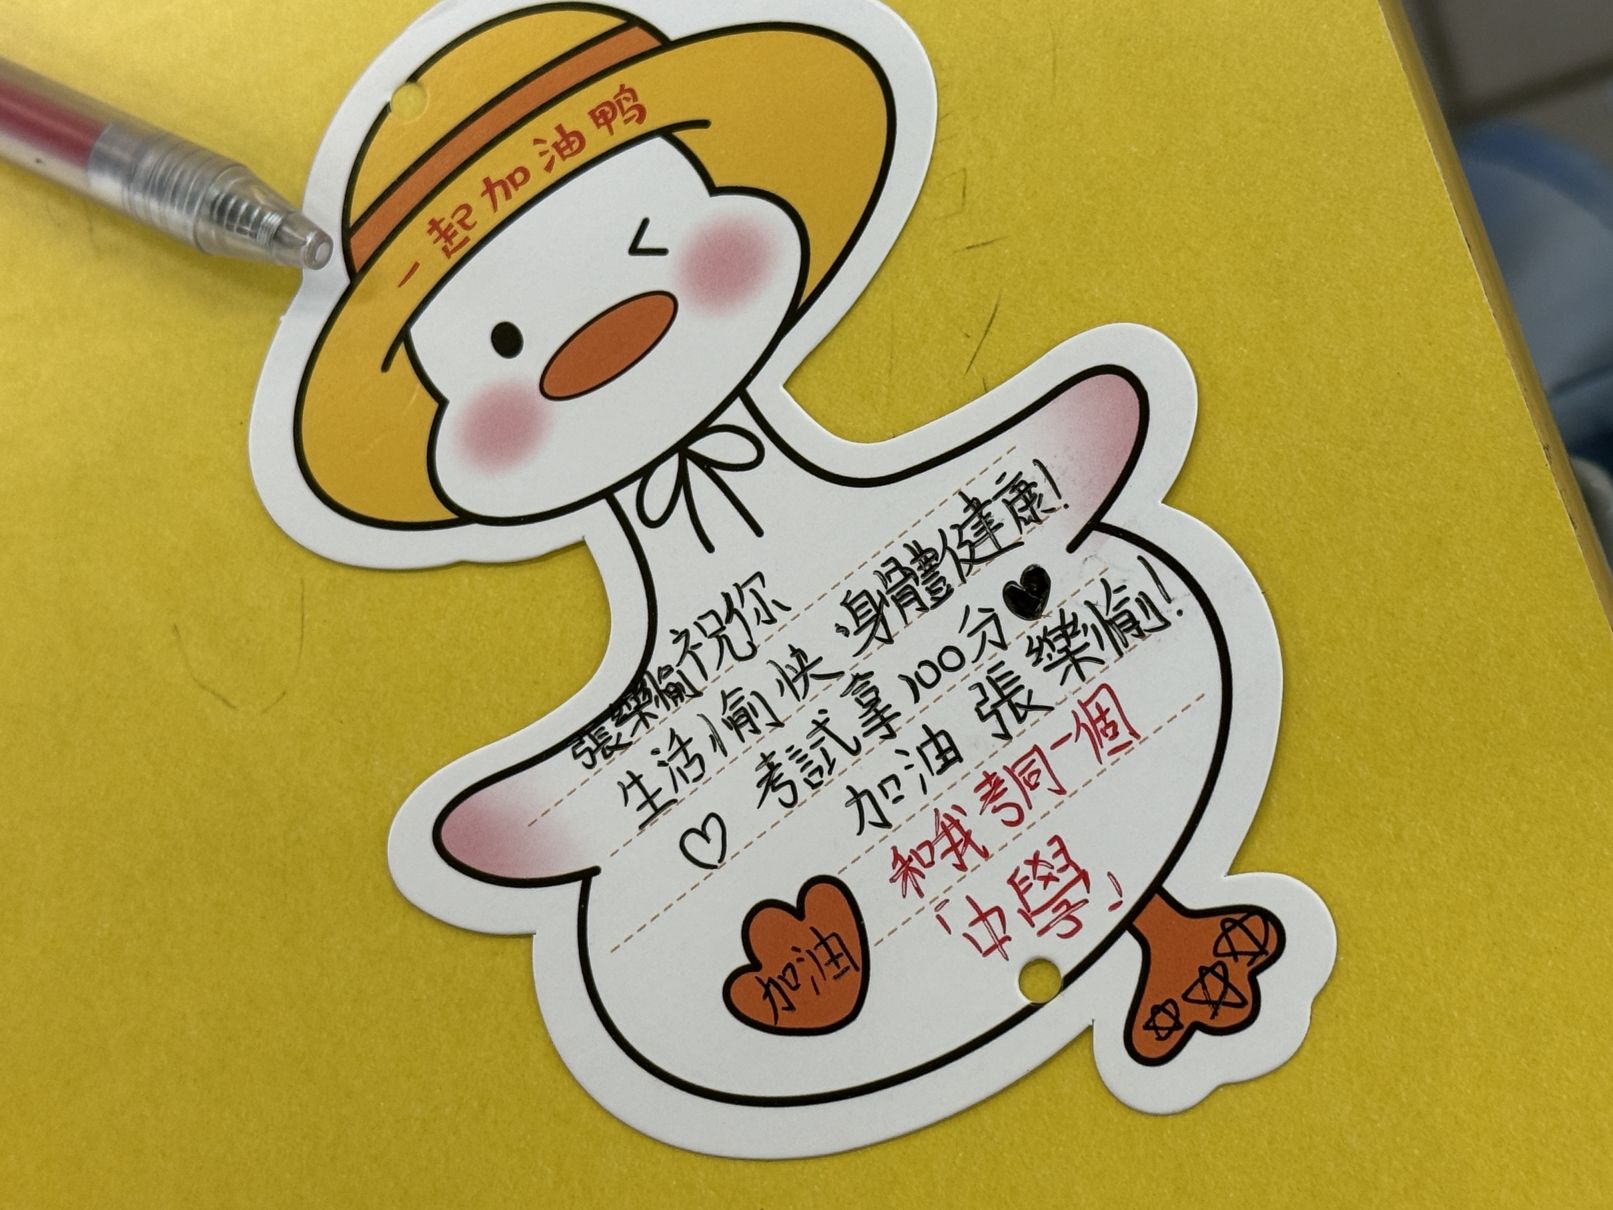 一起加油鸭
張樂愉祝你
生活愉快 身體健康!
♡ 考試拿100分♥
加油 張樂愉!
和我考同一個
「中學」
加油